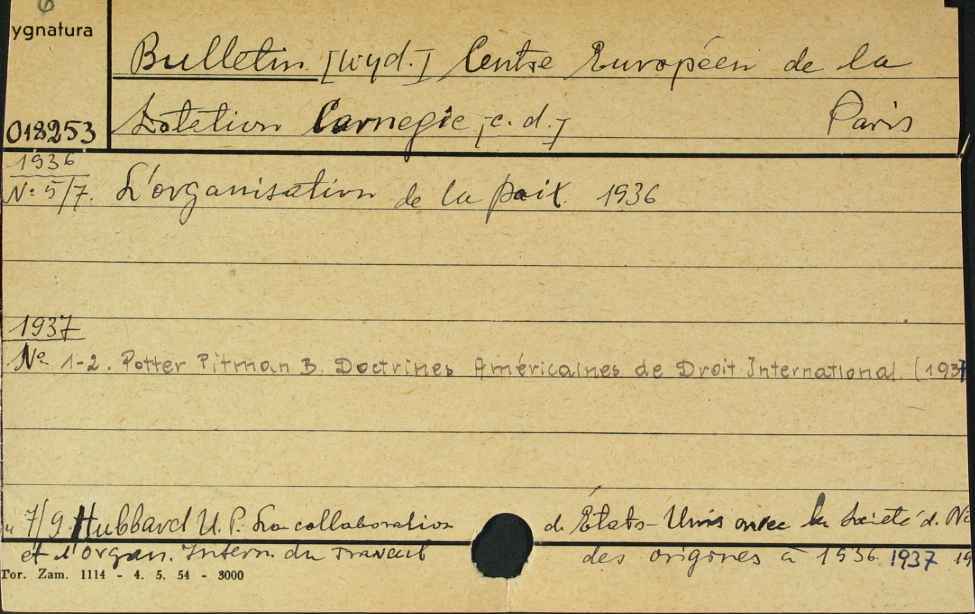 6
ygnatura
Bulletin [Wyd.] Centre Européen de la
018253 Dotation Carnegie [c. d.] Paris
1936
Nº 5/7. L'organisation de la paix. 1936
1937
Nº 1-2. Potter Pitman B. Doctrines Américaines de Droit International. [1937
„ 7/9. Hubbard U. P. La collaboration d. États-Unis avec la Société d. N
et l'organ. Intern. du Travail des origines à 1936. 1937 19
For. Zam. 1114 - 4. 5. 54 - 3000